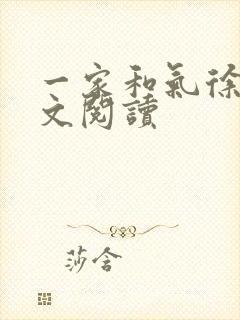 一家和氣徐
文閱讀
莎含